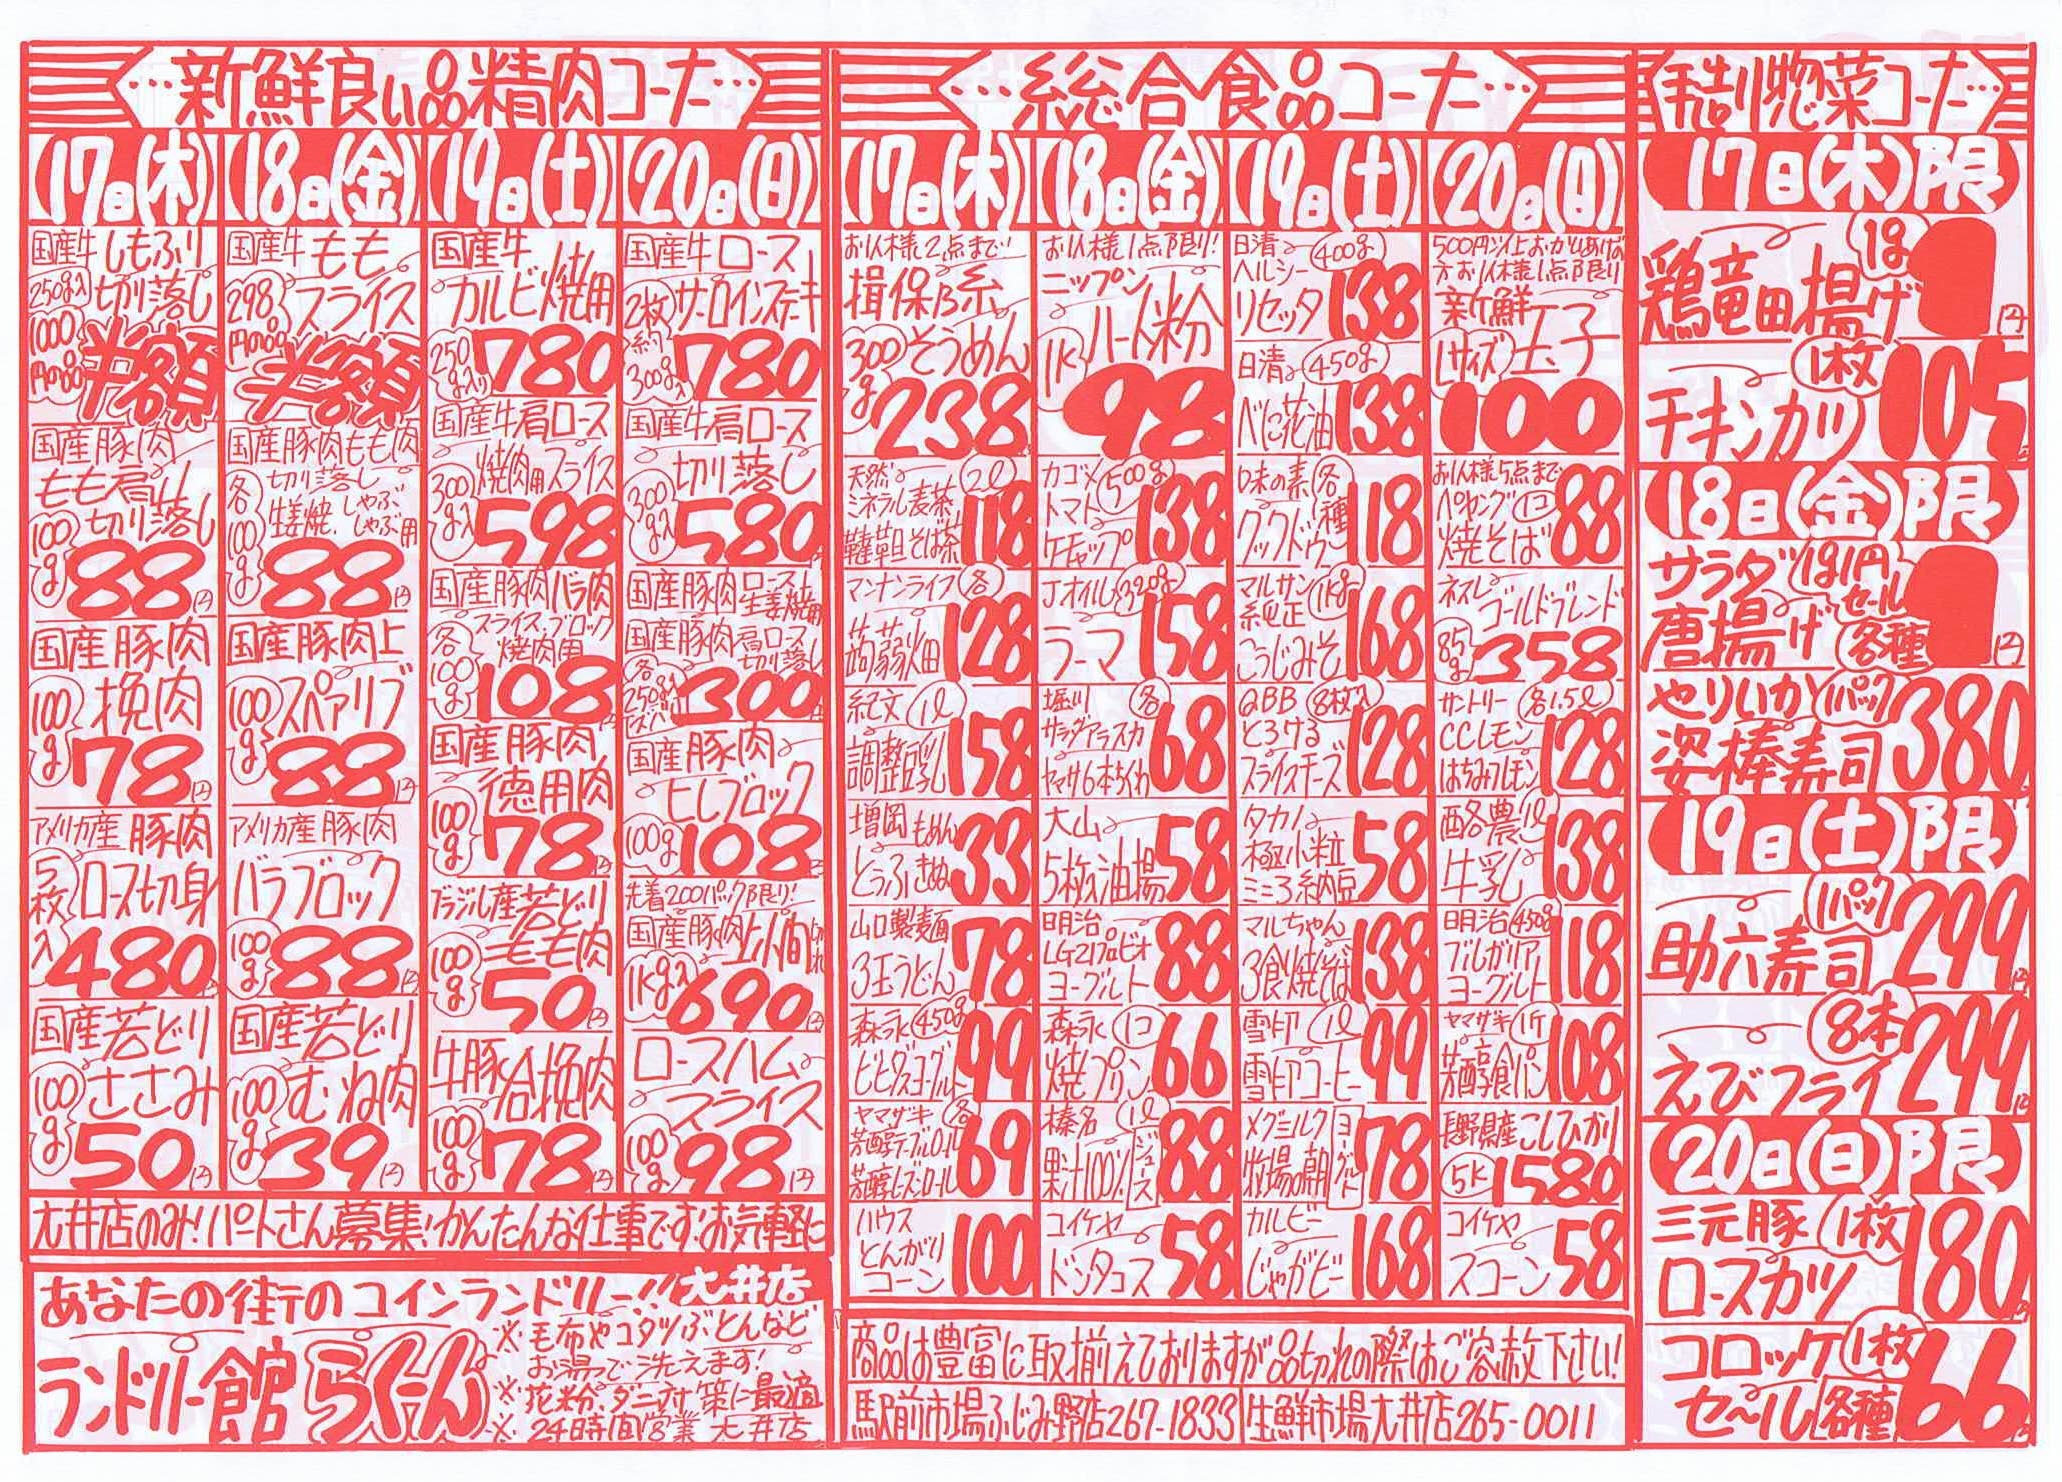 …新鮮良い品精肉コーナー…
17日(木)
国産牛しもふり
250g入 切り落し
1000円の品 半額
国産豚肉
もも肩
切り落し
100g 88円
国産豚肉
挽肉
100g 78円
アメリカ産豚肉
ロース切身
5枚入 480円
国産若どり
ささみ
100g 50円
18日(金)
国産牛もも
スライス
298円の品 半額
国産豚肉もも肉
切り落し
生姜焼.しゃぶしゃぶ用
各100g 88円
国産豚肉上
スペアリブ
100g 88円
アメリカ産豚肉
バラブロック
100g 88円
国産若どり
むね肉
100g 39円
19日(土)
国産牛
カルビ焼用
250g入り 780
国産牛肩ロース
焼肉用スライス
300g入 598
国産豚肉バラ肉
スライス.ブロック
焼肉用
各100g 108円
国産豚肉
徳用肉
100g 78円
ブラジル産若どり
もも肉
100g 50円
牛豚合挽肉
100g 78円
20日(日)
国産牛ロース
2枚 サーロインステーキ
約300g入 780
国産牛肩ロース
切り落し
300g入 580円
国産豚肉ロース生姜焼用
国産豚肉肩ロース切り落し
各250g入 300円
国産豚肉
ヒレブロック
100g 108円
先着200パック限り!
国産豚肉上小間切れ
1kg入 690円
ロースハム
スライス
100g 98円
大井店のみ!パートさん募集!かんたんな仕事です!お気軽に
あなたの街のコインランドリー!!大井店
ランドリー館らくーん
※毛布やコタツぶとんなど
お湯で洗えます!
※花粉.ダニ対策に最適
※24時間営業 大井店
…総合食品コーナー…
17日(木)
お1人様2点まで!
揖保乃糸
300g そうめん
238
天然ミネラル麦茶 2l
韃靼そば茶 118
マンナンライフ 各
蒟蒻畑 128
紀文 1l
調整豆乳 158
増岡 もめん
とうふ きぬ 33
山口製麺
3玉うどん 78
森永 450g
ビヒダスヨーグルト 99
ヤマザキ 各
芳醇テーブルロール
芳醇レーズンロール 69
ハウス
とんがりコーン 100
18日(金)
お1人様1点限り!
ニップン
ハート粉
1K 98
カゴメ 500g
トマトケチャップ 138
Jオイル 320g
ラーマ 158
堀川 各
サラダアラスカ
ヤマサ6本ちくわ 68
大山
5枚入油揚 58
明治
LG21プロビオ
ヨーグルト 88
森永 1コ
焼プリン 66
榛名 1l
果汁100% ジュース 88
コイケヤ
ドンタコス 58
19日(土)
日清 400g
ヘルシー
リセッタ 138
日清 450g
べに花油 138
味の素 各種
クックドゥー 118
マルサン 1kg
純正
こうじみそ 168
QBB 8枚入
とろける
スライスチーズ 128
タカノ
極小粒
ミニ3納豆 58
マルちゃん
3食焼そば 138
雪印 1l
雪印コーヒー 99
メグミルク
牧場の朝 ヨーグルト 78
カルビー
じゃがビー 168
20日(日)
500円以上お買いあげの
方お1人様1点限り
新鮮
Lサイズ 玉子
100
お1人様5点まで
ペヤング 1コ
焼そば 88
ネスレ
ゴールドブレンド
85g 358
サントリー 各1.5l
CCレモン
はちみつレモン 128
酪農 1l
牛乳 138
明治 450g
ブルガリア
ヨーグルト 118
ヤマザキ 1斤
芳醇食パン 108
長野県産こしひかり
5K 1580
コイケヤ
スコーン 58
商品は豊富に取揃えておりますが品切れの際はご容赦下さい!
駅前市場ふじみ野店267-1833 生鮮市場大井店265-0011
手造り惣菜コーナー…
17日(木)限
鶏竜田揚げ 1g 円
チキンカツ 1枚 105円
18日(金)限
サラダ 1g1円セール
唐揚げ 各種 円
やりいか 1パック
姿棒寿司 380
19日(土)限
助六寿司 1パック 299円
8本
えびフライ 299円
20日(日)限
三元豚 1枚
ロースカツ 180円
コロッケ 1枚
セール 各種 66円